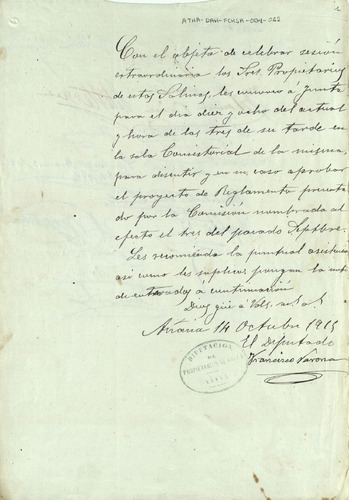 ATHA-DAH-FCHSA-004-062
1
Con el objeto de celebrar sesión
extraordinaria los Sres. Propietarios
de estas Salinas, les convoco á Junta
para el dia diez y ocho del actual
y hora de las tres de su tarde en
la sala Consistorial de la misma,
para discutir y en su caso aprobar
el proyecto de Reglamento presenta
do por la Comisión nombrada al
efecto el tres del pasado Septbre.
Les recomienda la puntual asistencia
así como les suplico pongan la nota
de enterados á continuación
Dios gue á Vds. m.s a.s
Añana 14 Octubre 1915
El Diputado
Francisco Varona
DIPUTACION
DE
PROPIETARIOS DE
AÑANA